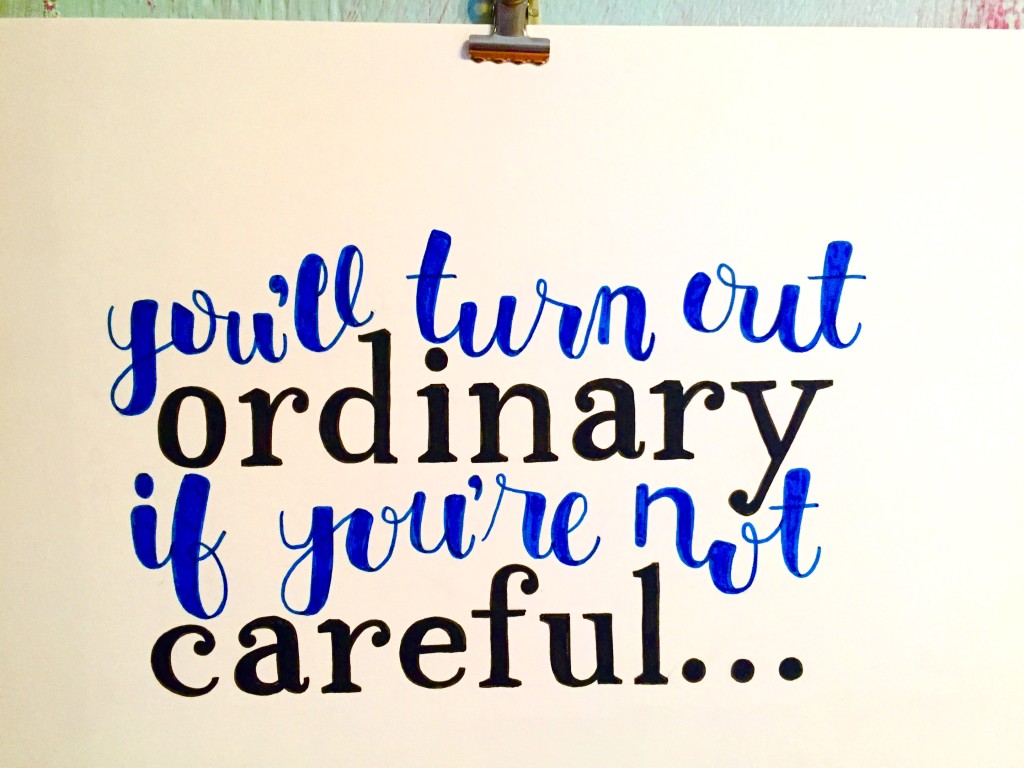 you'll turn out
ordinary
if you're not
careful...